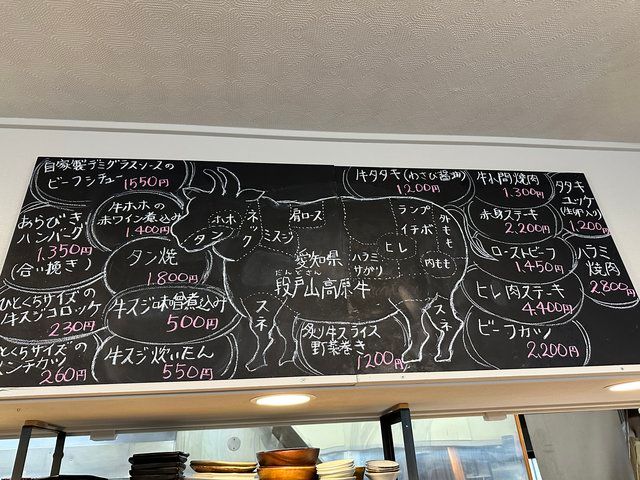 自家製デミグラスソースの
ビーフシチュー 1550円
あらびき
ハンバーグ
1.350円
(合い挽き)
牛ホホの
赤ワイン煮込み
1.400円
タン焼
1.800円
ひとくちサイズの
牛スジコロッケ
230円
牛スジ味噌煮込み
500円
とくちサイズの
ンチカツ
260円
牛スジ炊いたん
550円
ホホ
タン
ネック
肩ロース
ミスジ
ランプ
イチボ
外もも
ヒレ
内もも
ハラミ
サガリ
愛知県
だんどさん
段戸山高原牛
スネ
スネ
炙り牛スライス
野菜巻き
1200円
牛タタキ(わさび醤油)
1200円
牛小間焼肉
1.300円
タタキ
ユッケ
1,200円
赤身ステーキ
2.200円
ローストビーフ
1.450円
ハラミ
焼肉
2800円
ヒレ肉ステーキ
4.400円
ビーフカツ
2.200円